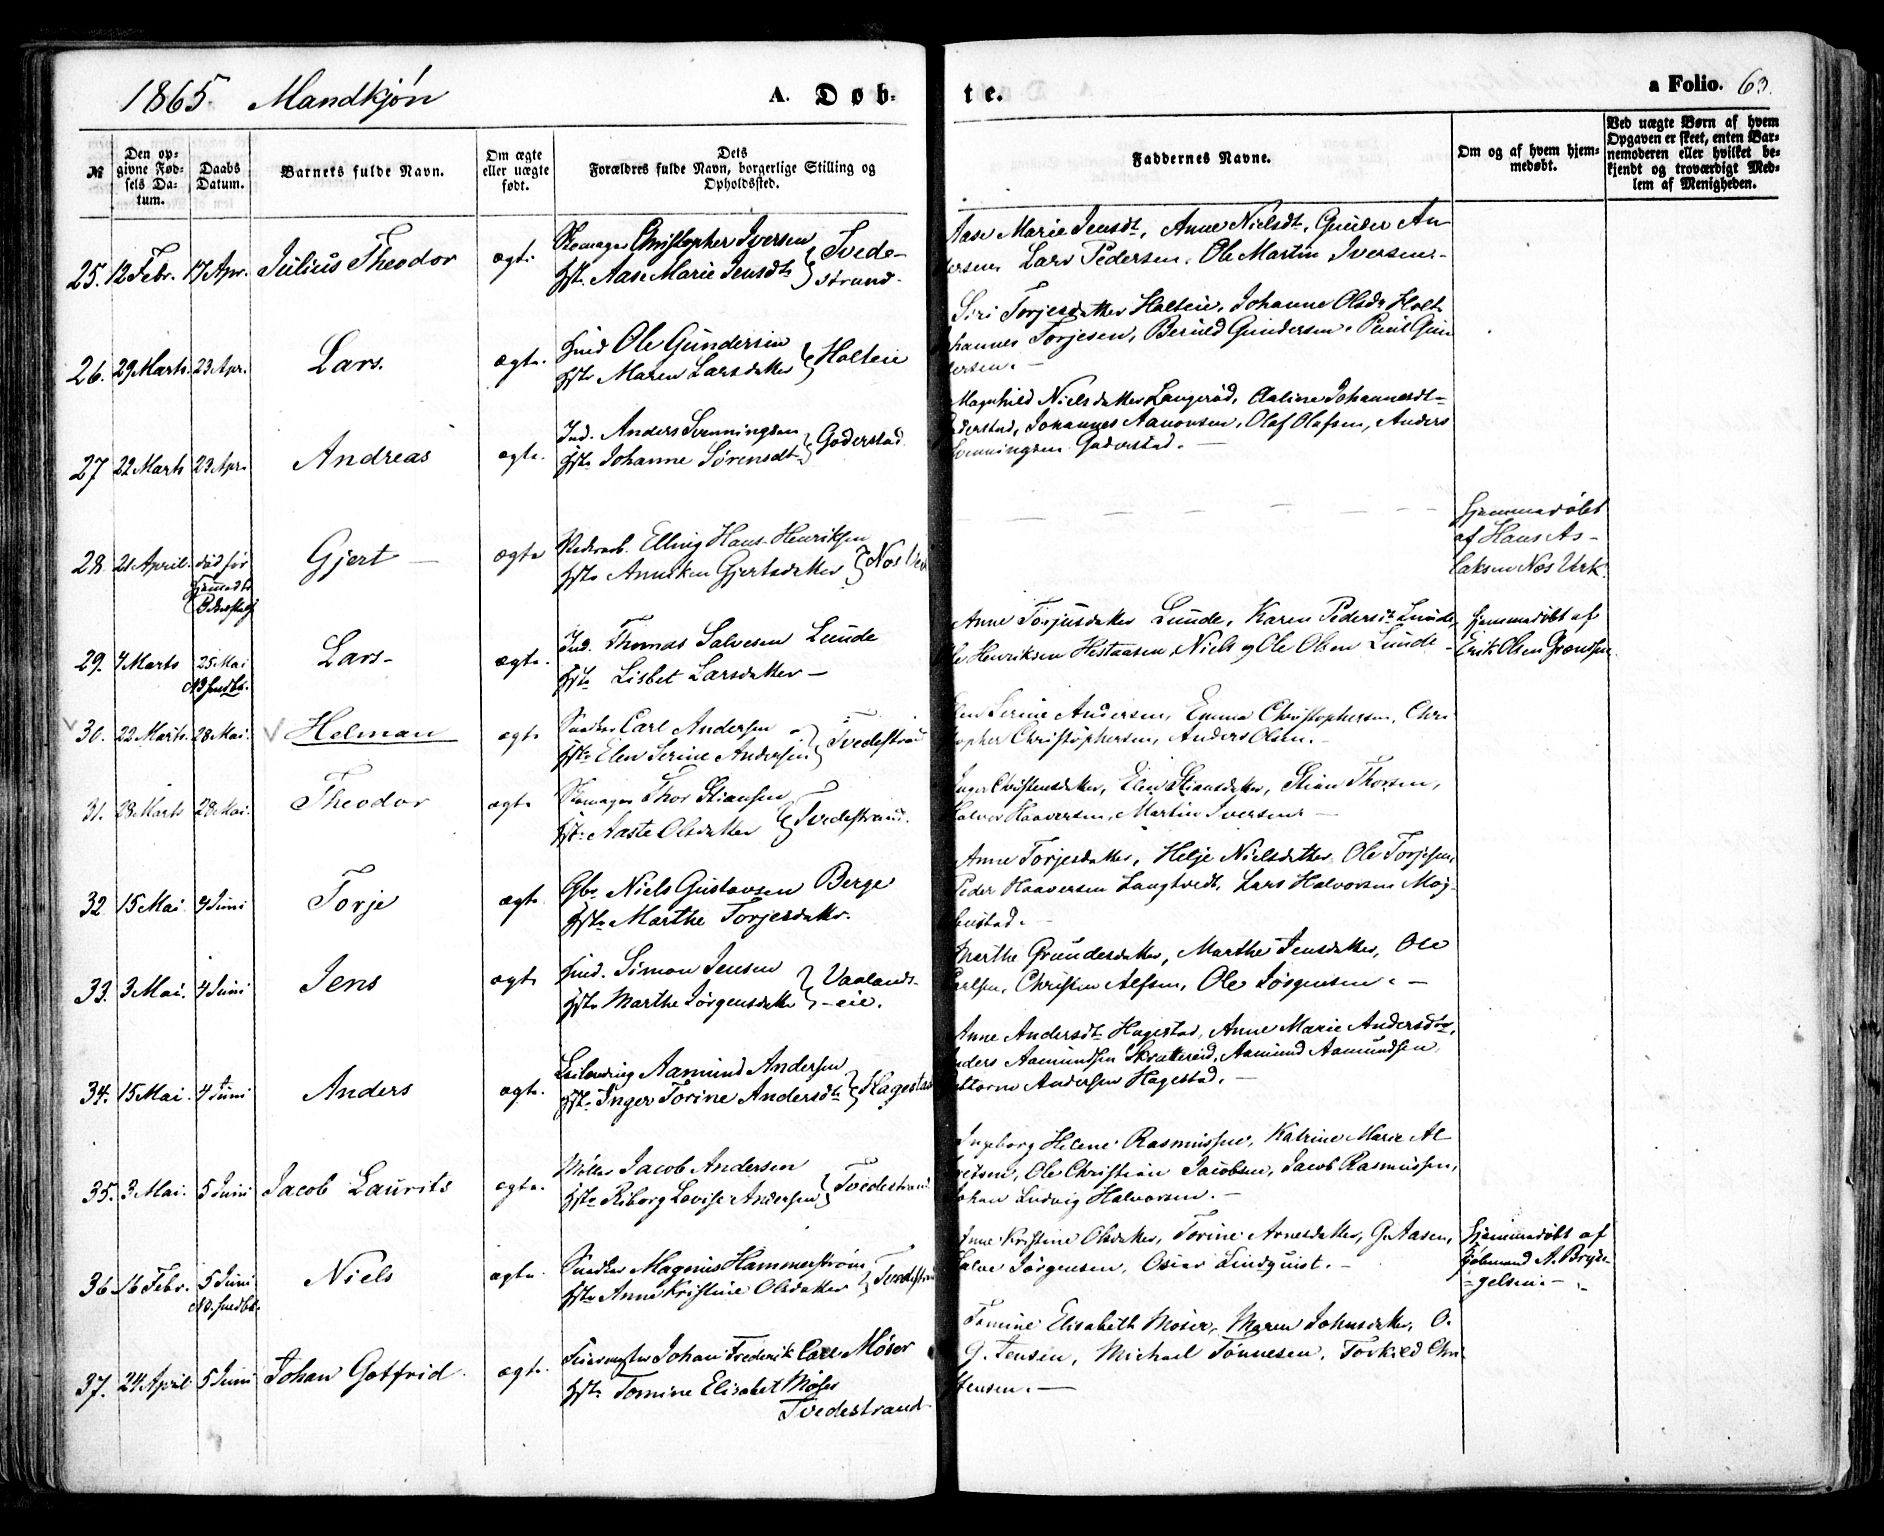 1865. Mandkjøn
A. Døb-
te.
a Folio. 63.
№
Den op-
givne Fød-
sels Da-
tum.
Daabs
Datum.
Barnets fulde Navn.
Om ægte
eller uægte
født.
Dets
Forældres fulde Navn, borgerlige Stilling og
Opholdssted.
Faddernes Navne.
Om og af hvem hjem-
medøbt.
Ved uægte Børn af hvem
Opgaven er skeet, enten Bar-
nemoderen eller hvilket be-
kjendt og troværdigt Med-
lem af Menigheden.
25. 12 Febr. 17 Apr. Julius Theodor ægte
Skomager Christopher Iversen
Hst. Aase Marie Jensdt
Tvede-
strand.
Aase Marie Jensdt, Anne Nielsdt, Gunder An
dersen Lars Pedersen, Ole Martin Iversen.
26. 29 Marts. 23 Apr. Lars. ægte.
Hmd Ole Gundersen
Hst. Maren Larsdatter
Holteie
Siri Torjesdatter Holteie, Johanne Olsdr Holt
ohannes Torjesen, Berild Gundersen, Poul Gun
dersen.
27 22 Marts 23 Apr. Andreas ægte.
Ind. Anders Svenningsen
Hst. Johanne Sørensdt
Goderstad
Magnhild Nielsdatter Langerød, Aaline Johannesdt
oderstad, Johannes Aanonsen, Olaf Olafsen, Anders
Svenningsen Goderstad.
28. 21 April. død før
Hjemedb
Gjert ægte
Elling Hans Henriksen
Hst. Anneken Gjertsdatter
Nos Verk
Hjemmedøbt
af Hans As-
laksen Næs Verk.
29. 7 Marts 25 Mai
Lars ægte.
Ind. Thomas Salvesen Lunde
Hst. Lisbet Larsdatter
Anne Torjusdatter Lunde, Karen Pedersdt Lunde,
Ole Henriksen Hestaasen, Niels og Ole Olsen Lunde
Hjemmedøbt af
Erik Olsen
30. 22 Marts. 28 Mai. Helman ægte
Snedker Carl Andersen
Hst. Elen Serine Andersen
Tvedestrand
Elen Serine Andersen, Emma Christophersen, Chri
stopher Christophersen, Anders Olsen.
31. 28 Marts 28 Mai. Theodor ægte
Skomager Thor Stiansen
Hst. Aaste Olsdatter
Tvedestrand.
Inger Christensdatter, Elen Stiansdatter, Stian Thorsen,
Halvor Haaversen, Martin Iversen.
32 15 Mai 4 Juni Torje ægte
Gbr Niels Gustavsen Berge
Hst. Marthe Torjesdatter.
Anne Torjesdatter, Helje Nielsdatter, Ole Torjesen,
Peder Haaversen Langtvedt, Lars Halvorsen Mog-
bustad.
33. 3 Mai. 4 Juni Jens ægte
Hmd. Simon Jensen
Hst. Marthe Jørgensdatter
Vaalands-
eie.
Marthe Gundersdatter, Marthe Jensdatter, Ole
Carlsen, Christen Alfsen, Ole Jørgensen.
34. 15 Mai 4 Juni Anders ægte.
Leilænding Aamund Andersen
Hst. Inger Torine Andersdt
Hagestad
Anne Andersdt Hagestad, Anne Marie Andersdtr,
Anders Aamundsen Skratereid, Aamund Aamundsen,
Guttorm Andersen Hagestad.
35. 3 Mai. 5 Juni Jacob Laurits ægte.
Møller Jacob Andersen
Hst. Riborg Lovise Andersen
Tvedestrand
Ingeborg Helene Rasmussen, Katrine Marie Al
bretsen, Ole Christian Jacobsen, Jacob Rasmussen,
Johan Ludvig Halvorsen.
36. 16 Febr. 5 Juni
Niels ægte.
Snedker Magnus Hammerstrøm
Hst. Anne Kristine Olsdatter
Tvedestrand
Anne Kristine Olsdatter, Torine Arnesdatter, G. Aasen,
Salve Jørgensen, Oscar Lindquist.
Hjemmedøbt af
A. Bryde
gelsen.
37. 24 April 5 Juni Johan Gotfrid. ægte.
Johan Frederik Carl Møser
Hst. Tomine Elisabet Møser
Tvedestrand
Tomine Elisabeth Moser, Maren Johnsdatter, O.
G. Jensen, Michael Tønnesen, Torkild Chri
stensen.